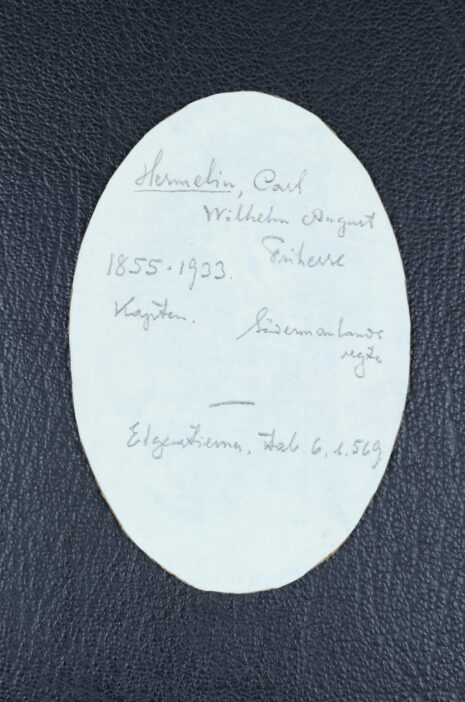 Hermelin, Carl
Wilhelm August
Friherre
1855-1933.
Kapten.
Södermanlands
regte
Elgenstierna, tab 6, s. 569